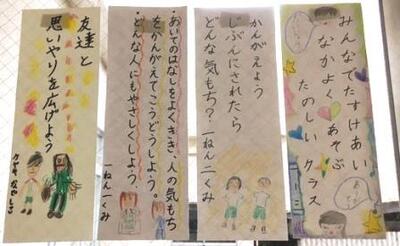 みんなでたすけあい
なかよくあそぶ
たのしいクラス
かんがえよう
じぶんにされたら
どんな気もち？一ねん二くみ
・あいてのはなしをよくきき、人の気もち
をかんがえてこうどうしよう。
・どんな人にもやさしくしよう。
一ねん一くみ
友達と
思いやりを広げよう